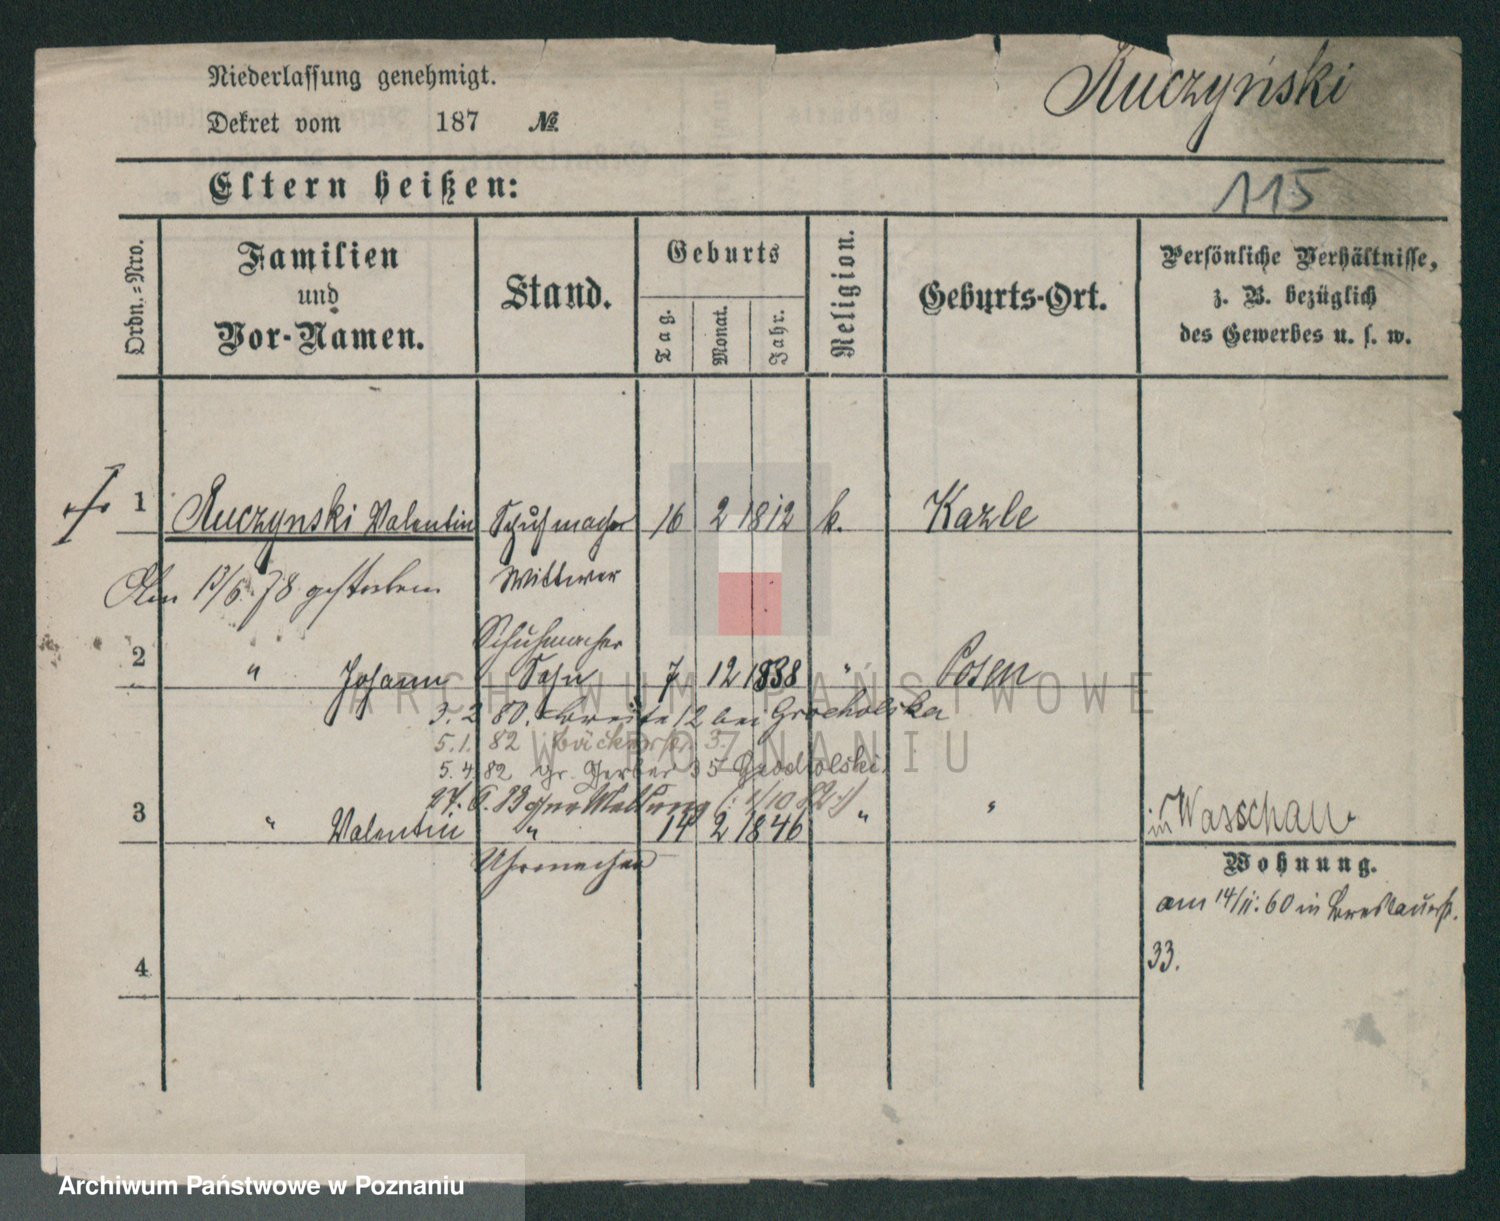 Niederlassung genehmigt.
Kuczyński
Dekret vom 187 №
Eltern heißen:
115
Ordn.-Nro.
Familien
und
Vor-Namen.
Stand.
Geburts
Tag.
Monat.
Jahr.
Religion.
Geburts-Ort.
Persönliche Verhältnisse,
z. B. bezüglich
des Gewerbes u. s. w.
1 Kuczynski Valentin Schuhmacher 16 2 1812 k. Kazle
Wittwer
13/6 78 gestorben
Schuhmacher
2 " Johann Sohn 7 12 1838 " Posen
ARCHIWUM PAŃSTWOWE
W POZNANIU
3. 2 80. Breite 12 bei Grocholska
5.1. 82 Bäckerstr. 3.
5. 4. 82 gr. Gerber 35 Grocholski
27. 6. 83 1/10 82
3 " Valentin " 14 2 1846 " " in Warschau
Uhrmacher
Wohnung.
am 14/11. 60 in Breslauerstr.
33.
4
Archiwum Państwowe w Poznaniu